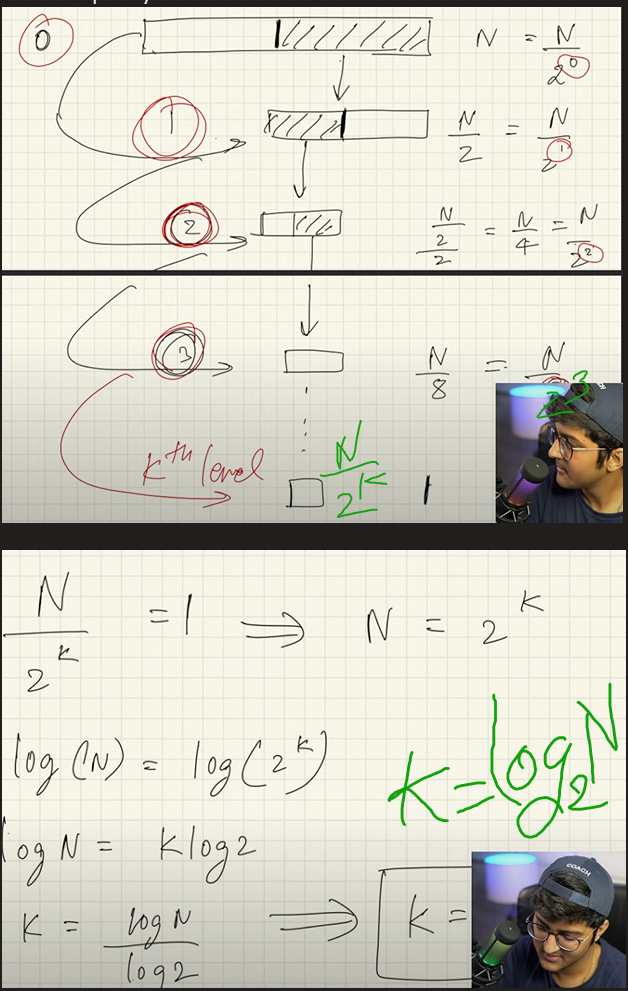 0 N = N/2^0
1 N/2 = N/2^1
2 N/2/2 = N/4 = N/2^2
3 N/8 = N/2^3
Kth level N/2^K 1
N/2^K = 1 ⇒ N = 2^K
log (N) = log(2^K)
log N = K log2
K = log2 N
K = log N / log 2 ⇒ K =
COACH